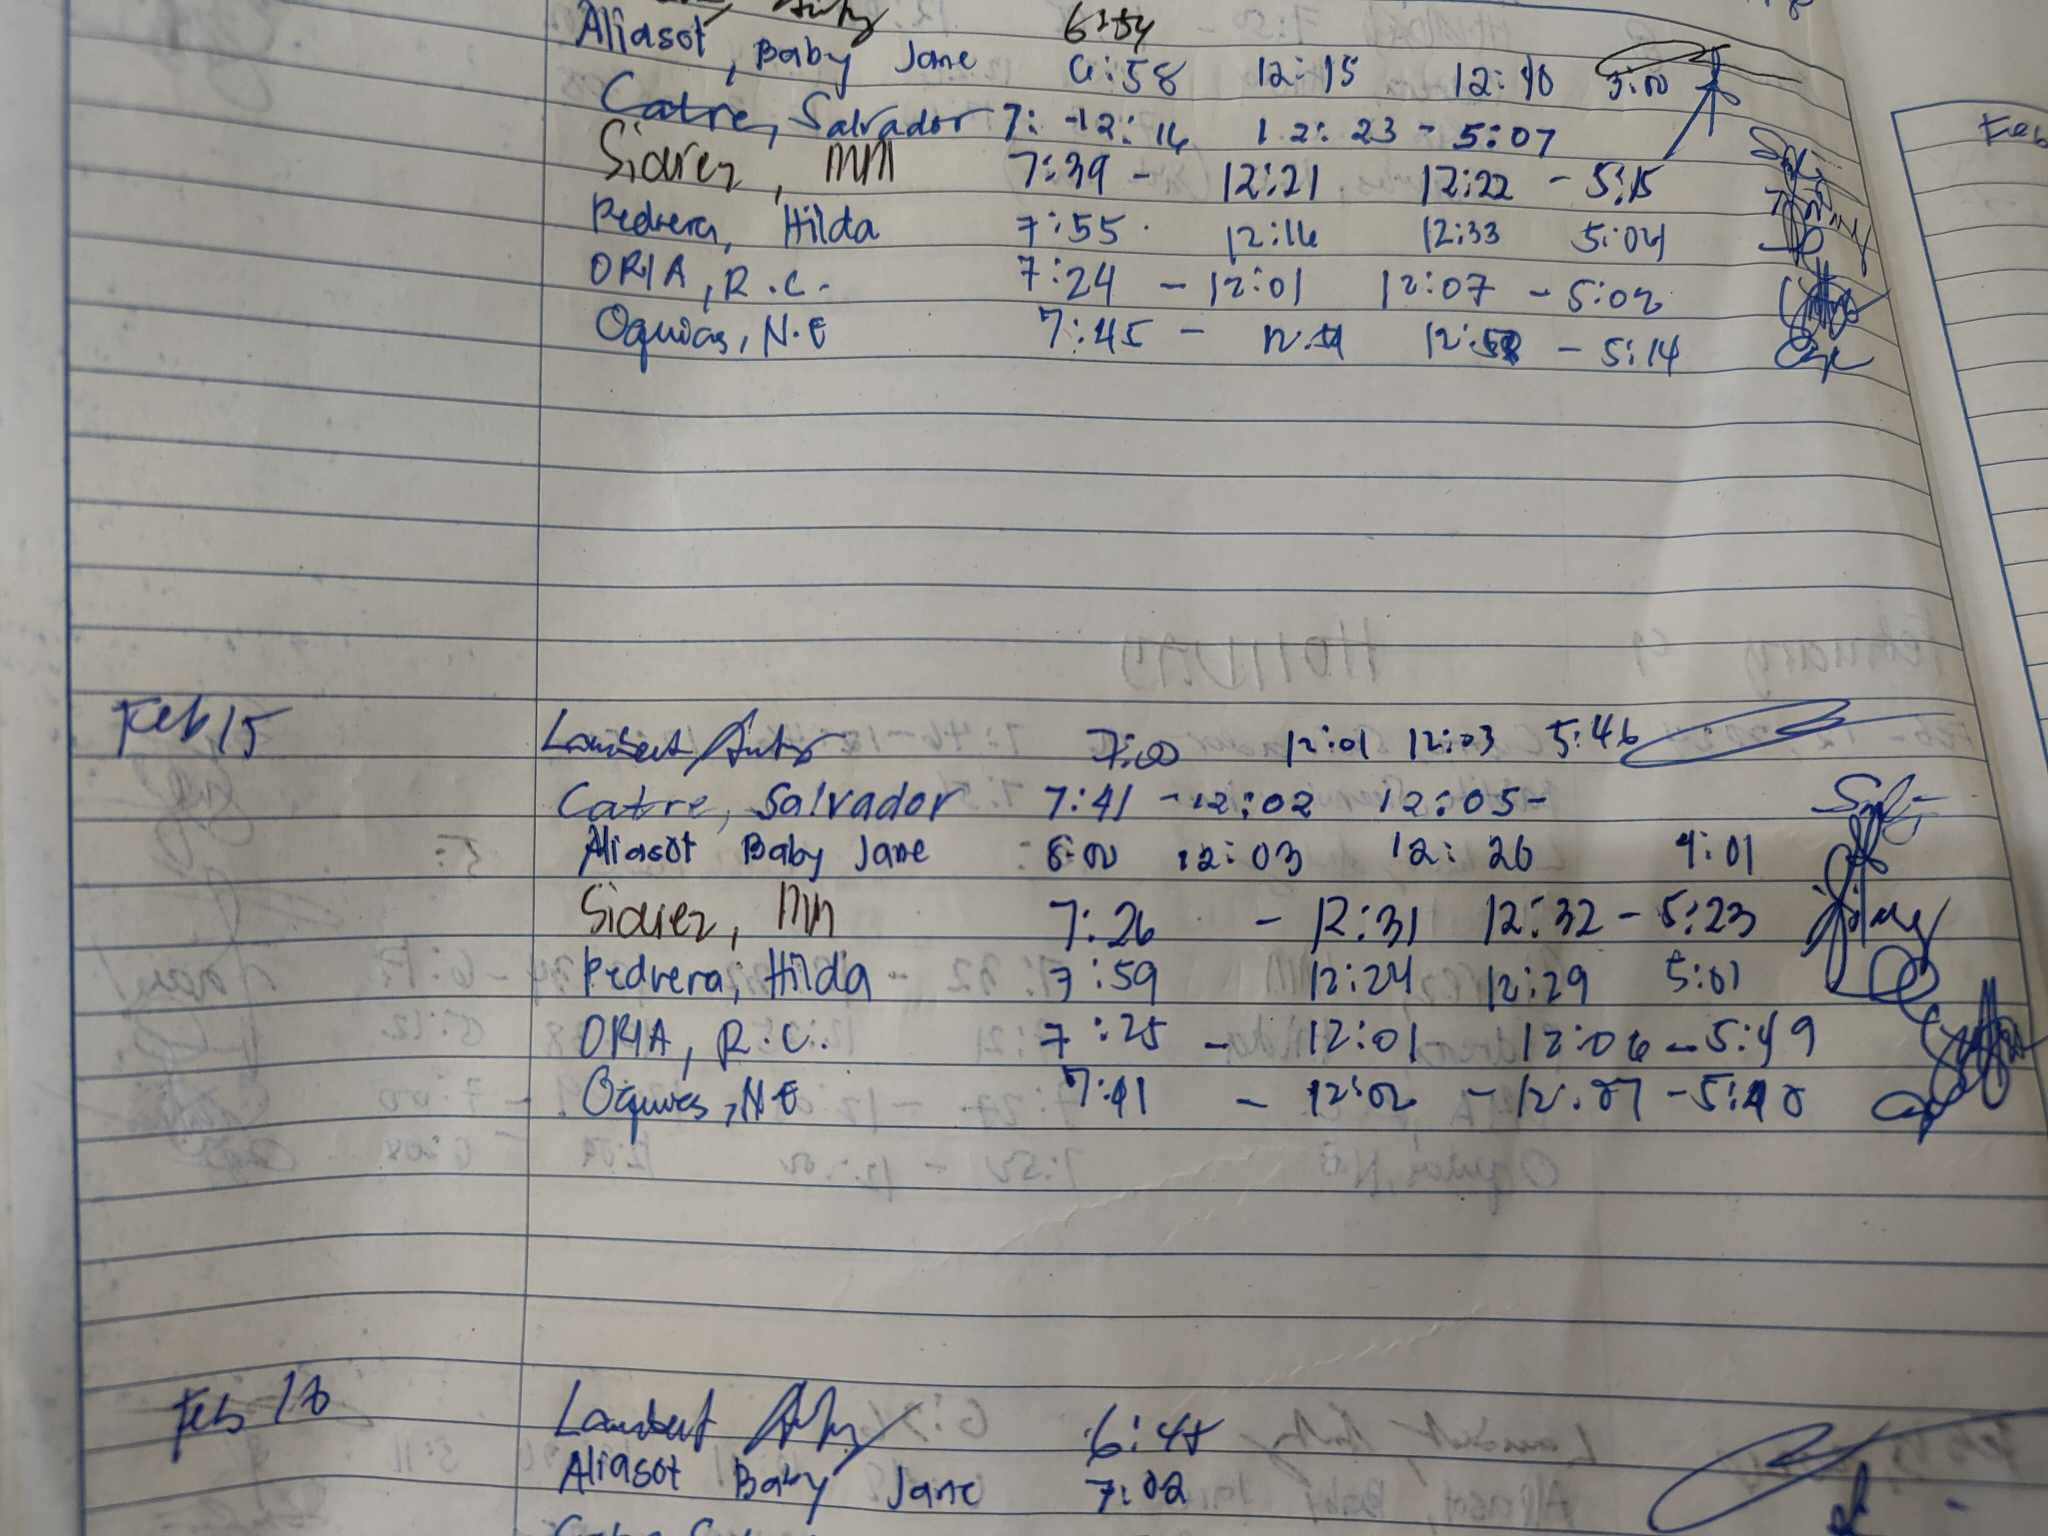 6:54
Aliasot, Baby Jane 6:58 12:15 12:40 5:00
Catre, Salvador 7: -12:16 12:23 - 5:07
Siarez, MM 7:39 - 12:21 12:22 - 5:15
Pedrera, Hilda 7:55 12:16 12:33 5:04
ORIA, R.C. 7:24 - 12:01 12:07 - 5:02
Oquias, N.E 7:45 - 12:58 - 5:14
Feb
Feb 15 Lambert 7:00 12:01 12:03 5:46
Catre, Salvador 7:41 - 12:02 12:05 -
Aliasot Baby Jane 6:00 12:03 12:26 4:01
Siarez, MM 7:26 - 12:31 12:32 - 5:23
Pedrera, Hilda 7:59 12:24 12:29 5:01
ORIA, R.C. 7:25 - 12:01 12:06 - 5:49
Oquias, N.E 7:41 - 12:02 - 12:07 -
Feb 16 Lambert 6:48
Aliasot Baby Jane 7:02